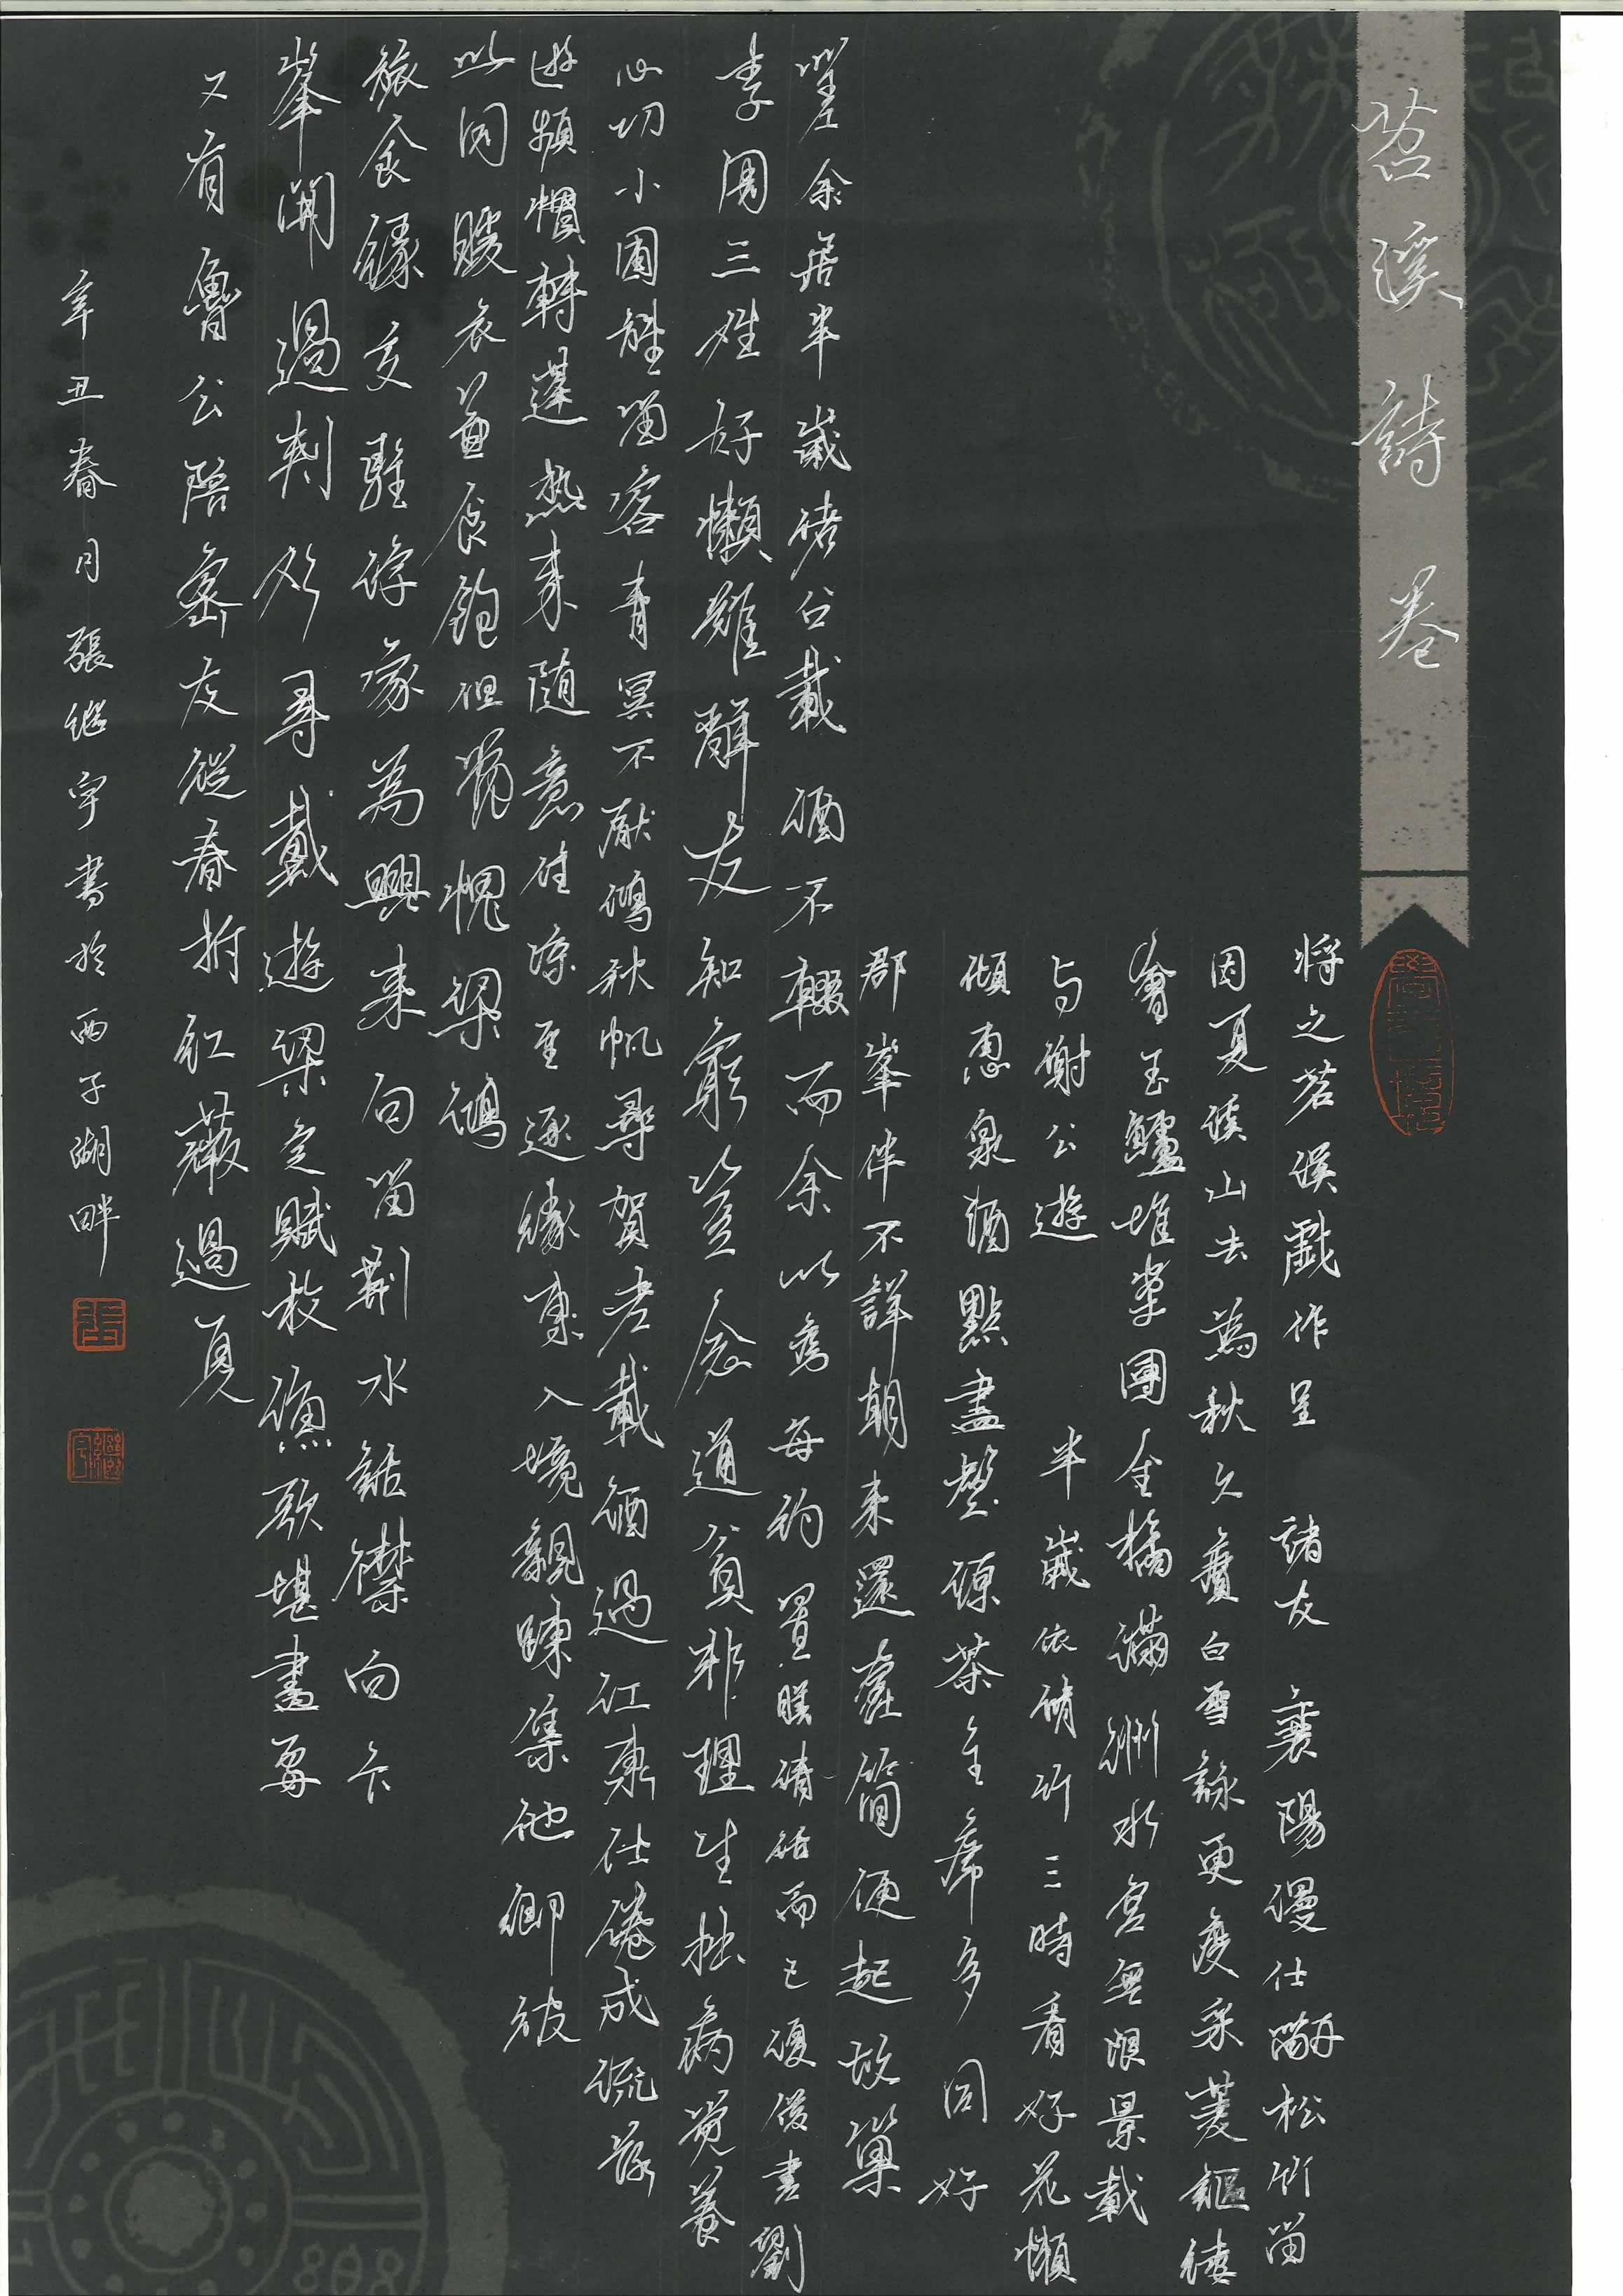 苕溪詩卷
將之苕溪戲作呈 諸友 襄陽漫仕黻松竹留
因夏溪山去為秋久賡白雪詠更度采菱謳縷
會玉鱸堆案團金橘滿洲水宮無限景載
与謝公遊 半歲依脩竹三時看好花懶
傾惠泉酒點盡壑源茶主席多 同好
郡峯伴不譁朝来還蠹簡便起故巢
嗟余居半歲諸公載酒不輟而余以疾每約置膳清話而已復借書劉
李周三姓好懶難辭友知窮豈念道貧非理生拙病覺養
心切小圃能留客青冥不厭鴻秋帆尋賀老載酒過江東仕倦成流落
遊頻慣轉蓬热来随意住凉至逐緣東入境親疎集他鄉彼
此同暖衣兼食飽但覺愧梁鴻
旅食緣交駐浮家為興来句留荆水話襟向卞
峯開過剡如尋戴遊梁定賦枚漁歌堪畫又
又有魯公陪密友從春拆紅薇過夏
辛丑春月張继宇書於西子湖畔
張